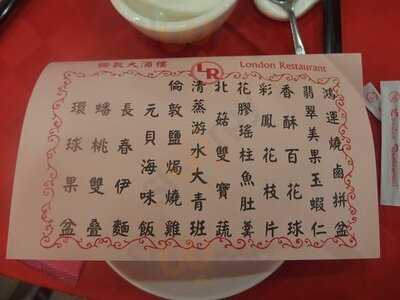 倫敦大酒樓
LR
London Restaurant
鴻運燒鹵拼盆
翡翠美果玉蝦仁
香酥百花球
彩鳳花枝片
花膠瑤柱魚肚羹
北菇雙寶蔬
清蒸游水大青班
倫敦鹽焗燒雞
元貝海味飯
長春伊麵
蟠桃雙叠
環球果盆